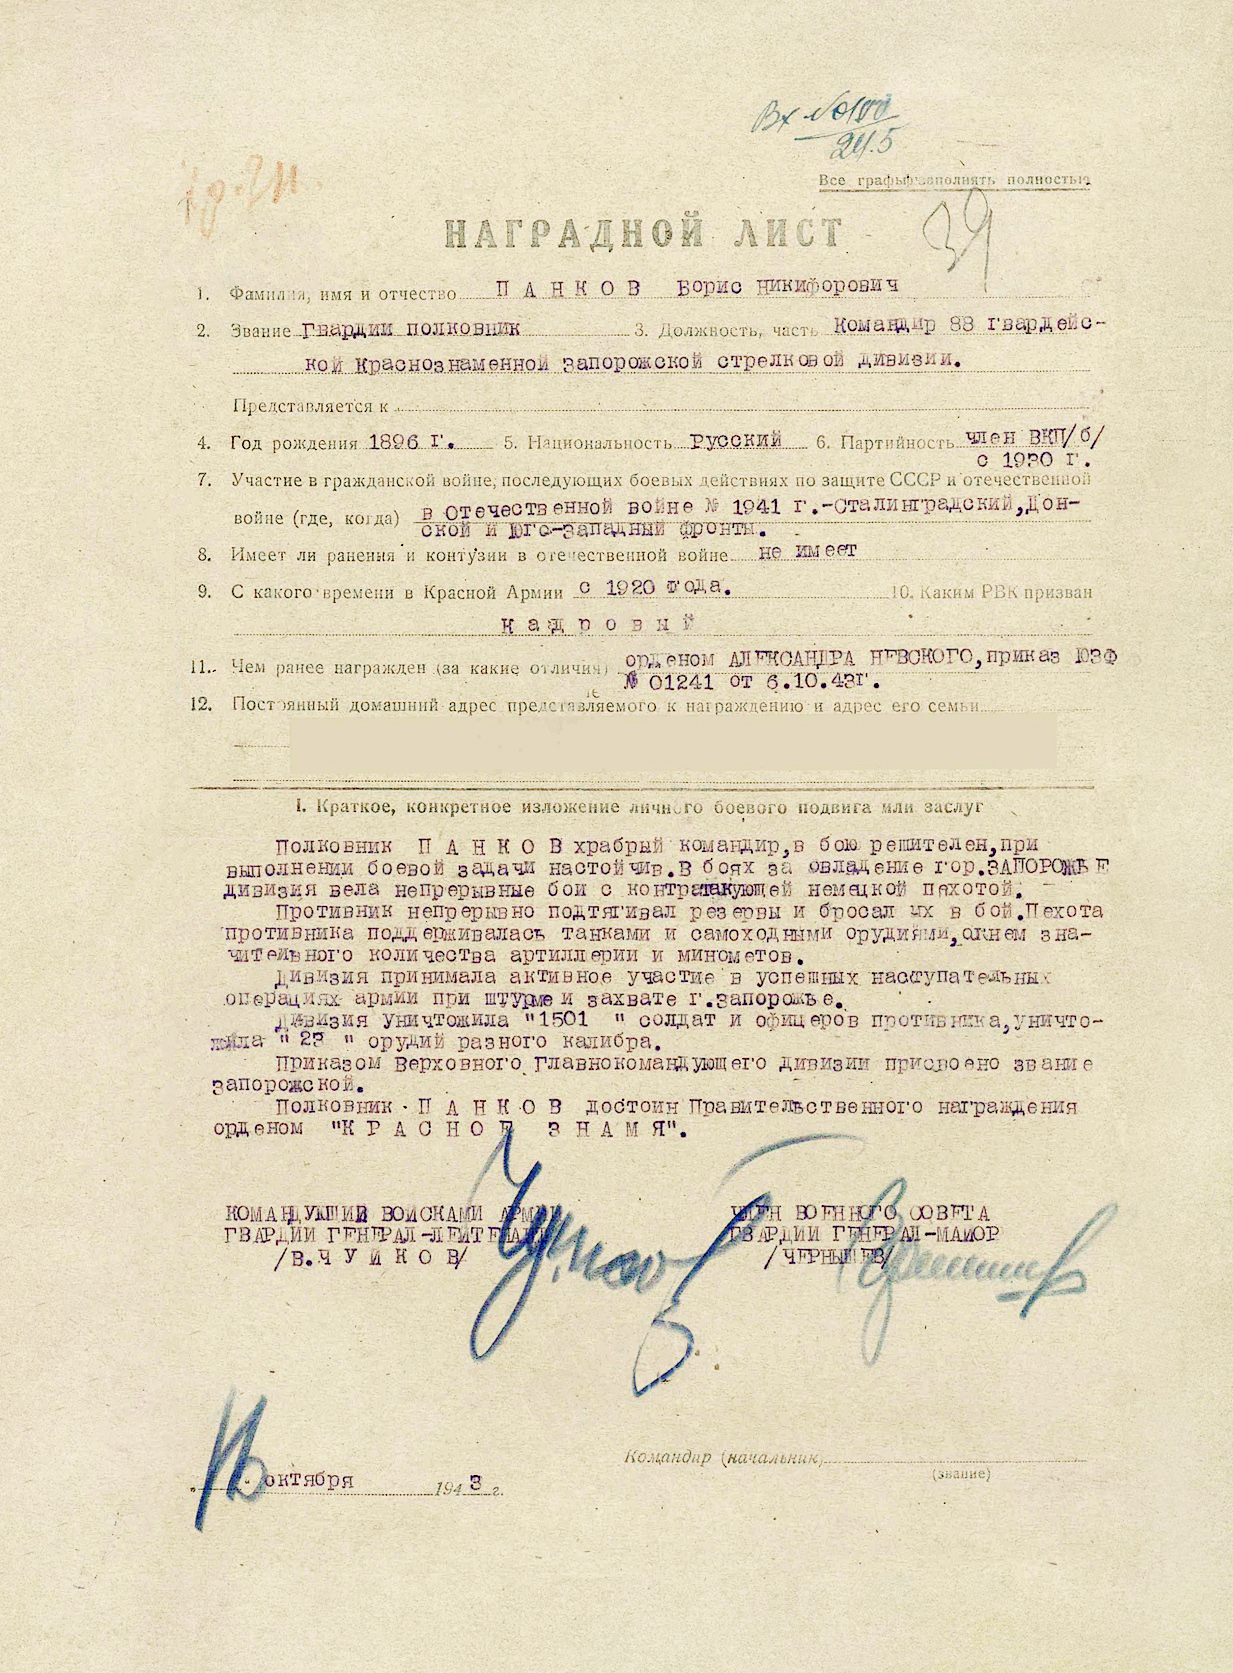 Вх №0180
24.5
Все графы заполнять полностью
НАГРАДНОЙ ЛИСТ
39
1. Фамилия, имя и отчество П А Н К О В Борис Никифорович
2. Звание Гвардии полковник 3. Должность, часть Командир 88 гвардейс-
кой Краснознаменной Запорожской стрелковой дивизии.
Представляется к
4. Год рождения 1896 г. 5. Национальность Русский 6. Партийность член ВКП/б/
с 1930 г.
7. Участие в гражданской войне, последующих боевых действиях по защите СССР и отечественной
войне (где, когда) в Отечественной войне № 1941 г.-Сталинградский,Дон-
ской и Юго-Западный фронты.
8. Имеет ли ранения и контузии в отечественной войне не имеет
9. С какого времени в Красной Армии с 1920 года. 10. Каким РВК призван
к а д р о в ы й
11. Чем ранее награжден (за какие отличия) орденом АЛЕКСАНДРА НЕВСКОГО,приказ ЮЗФ
№ 01241 от 6.10.43г.
12. Постоянный домашний адрес представляемого к награждению и адрес его семьи
I. Краткое, конкретное изложение личного боевого подвига или заслуг
Полковник П А Н К О В храбрый командир,в бою решителен,при
выполнении боевой задачи настойчив.В боях за овладение гор.ЗАПОРОЖЬЕ
дивизия вела непрерывные бои с контратакующей немецкой пехотой.
Противник непрерывно подтягивал резервы и бросал их в бой.Пехота
противника поддерживалась танками и самоходными орудиями,огнем зна-
чительного количества артиллерии и минометов.
Дивизия принимала активное участие в успешных наступательных
операциях армии при штурме и захвате г.Запорожье.
Дивизия уничтожила "1501 " солдат и офицеров противника,уничто-
жила " 23 " орудий разного калибра.
Приказом Верховного Главнокомандующего дивизии присвоено звание
Запорожской.
Полковник П А Н К О В достоин Правительственного награждения
орденом "К Р А С Н О Е З Н А М Я".
КОМАНДУЮЩИЙ ВОЙСКАМИ АРМИИ ЧЛЕН ВОЕННОГО СОВЕТА
ГВАРДИИ ГЕНЕРАЛ-ЛЕЙТЕНАНТ ГВАРДИИ ГЕНЕРАЛ-МАЙОР
/В.Ч У Й К О В/ /ЧЕРНЫШЕВ/
Командир (начальник)
(звание)
16 октября 1943 г.